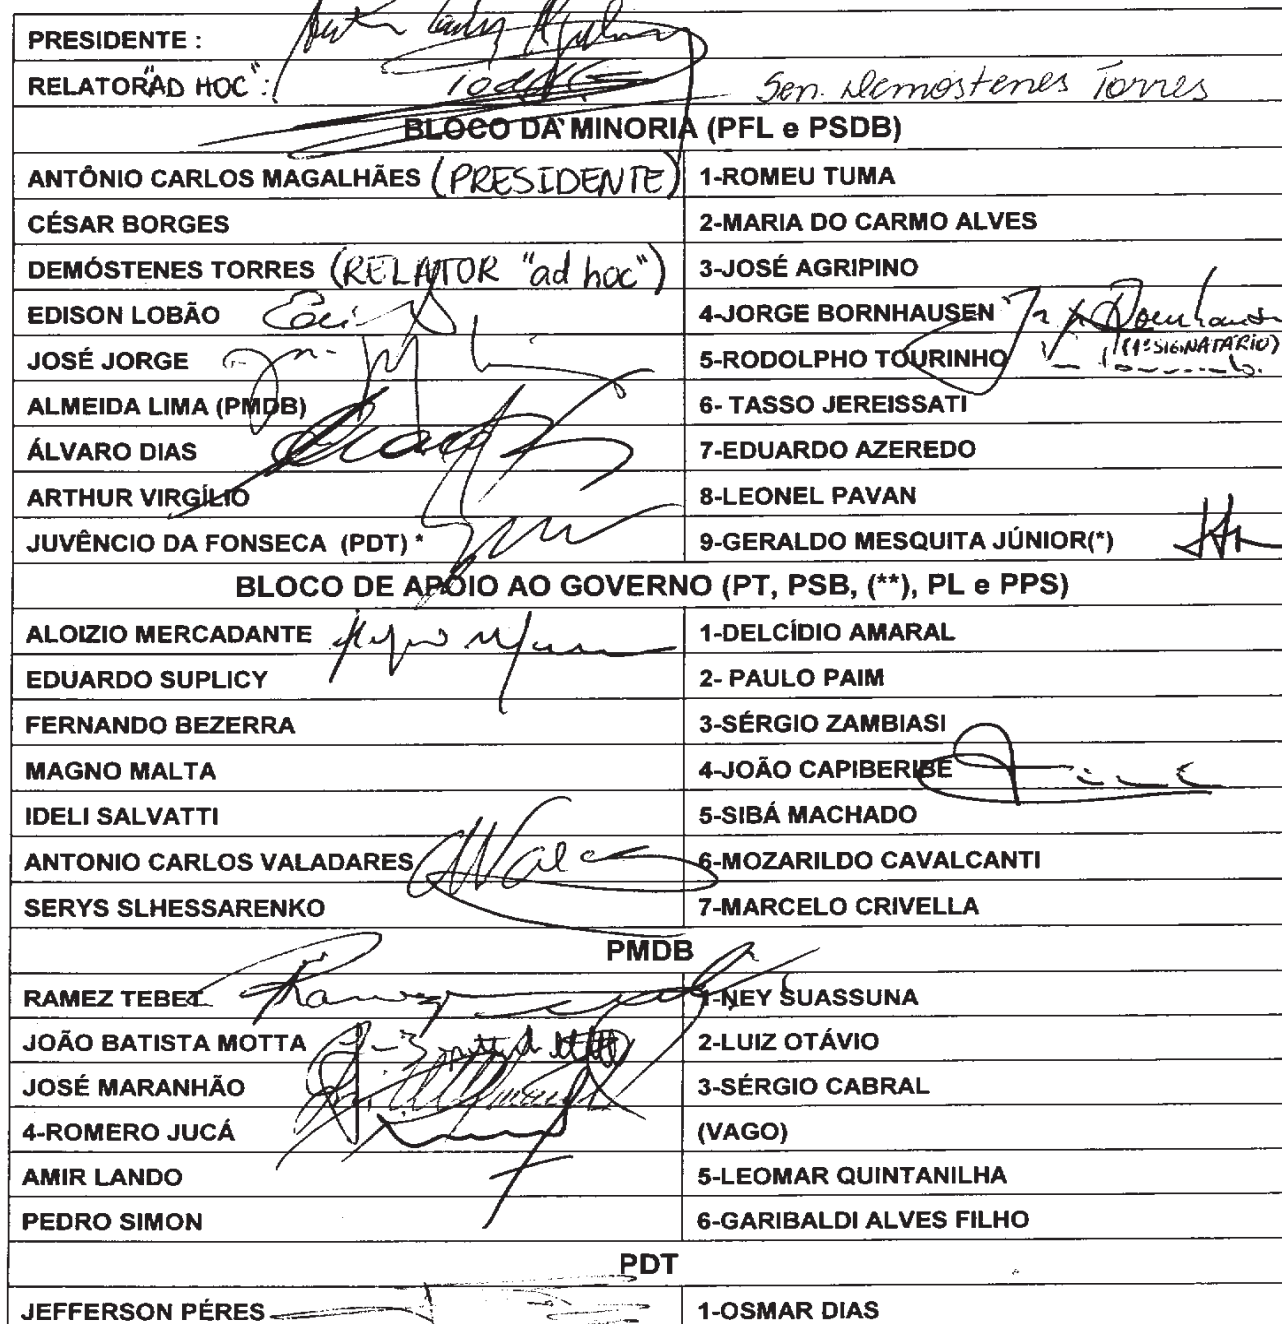 PRESIDENTE :
RELATOR "AD HOC" : Sen. Demóstenes Torres
BLOCO DA MINORIA (PFL e PSDB)
ANTÔNIO CARLOS MAGALHÃES (PRESIDENTE) 1-ROMEU TUMA
CÉSAR BORGES 2-MARIA DO CARMO ALVES
DEMÓSTENES TORRES (RELATOR "ad hoc") 3-JOSÉ AGRIPINO
EDISON LOBÃO 4-JORGE BORNHAUSEN
JOSÉ JORGE 5-RODOLPHO TOURINHO (1º SIGNATÁRIO)
ALMEIDA LIMA (PMDB) 6- TASSO JEREISSATI
ÁLVARO DIAS 7-EDUARDO AZEREDO
ARTHUR VIRGÍLIO 8-LEONEL PAVAN
JUVÊNCIO DA FONSECA (PDT) * 9-GERALDO MESQUITA JÚNIOR(*)
BLOCO DE APOIO AO GOVERNO (PT, PSB, (**), PL e PPS)
ALOIZIO MERCADANTE 1-DELCÍDIO AMARAL
EDUARDO SUPLICY 2- PAULO PAIM
FERNANDO BEZERRA 3-SÉRGIO ZAMBIASI
MAGNO MALTA 4-JOÃO CAPIBERIBE
IDELI SALVATTI 5-SIBÁ MACHADO
ANTONIO CARLOS VALADARES 6-MOZARILDO CAVALCANTI
SERYS SLHESSARENKO 7-MARCELO CRIVELLA
PMDB
RAMEZ TEBET 1-NEY SUASSUNA
JOÃO BATISTA MOTTA 2-LUIZ OTÁVIO
JOSÉ MARANHÃO 3-SÉRGIO CABRAL
4-ROMERO JUCÁ (VAGO)
AMIR LANDO 5-LEOMAR QUINTANILHA
PEDRO SIMON 6-GARIBALDI ALVES FILHO
PDT
JEFFERSON PÉRES 1-OSMAR DIAS